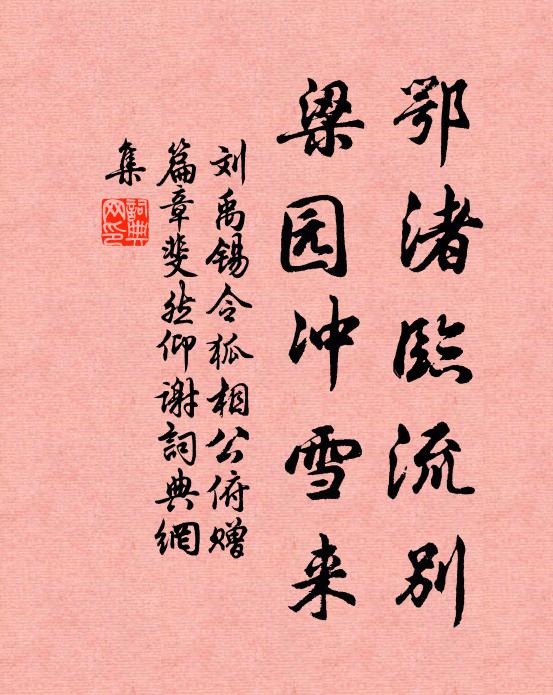 鄂渚臨流别
梁园冲雪来
刘禹锡令狐相公俯赠
篇章斐然仰谢詞典網
集
詞典網印